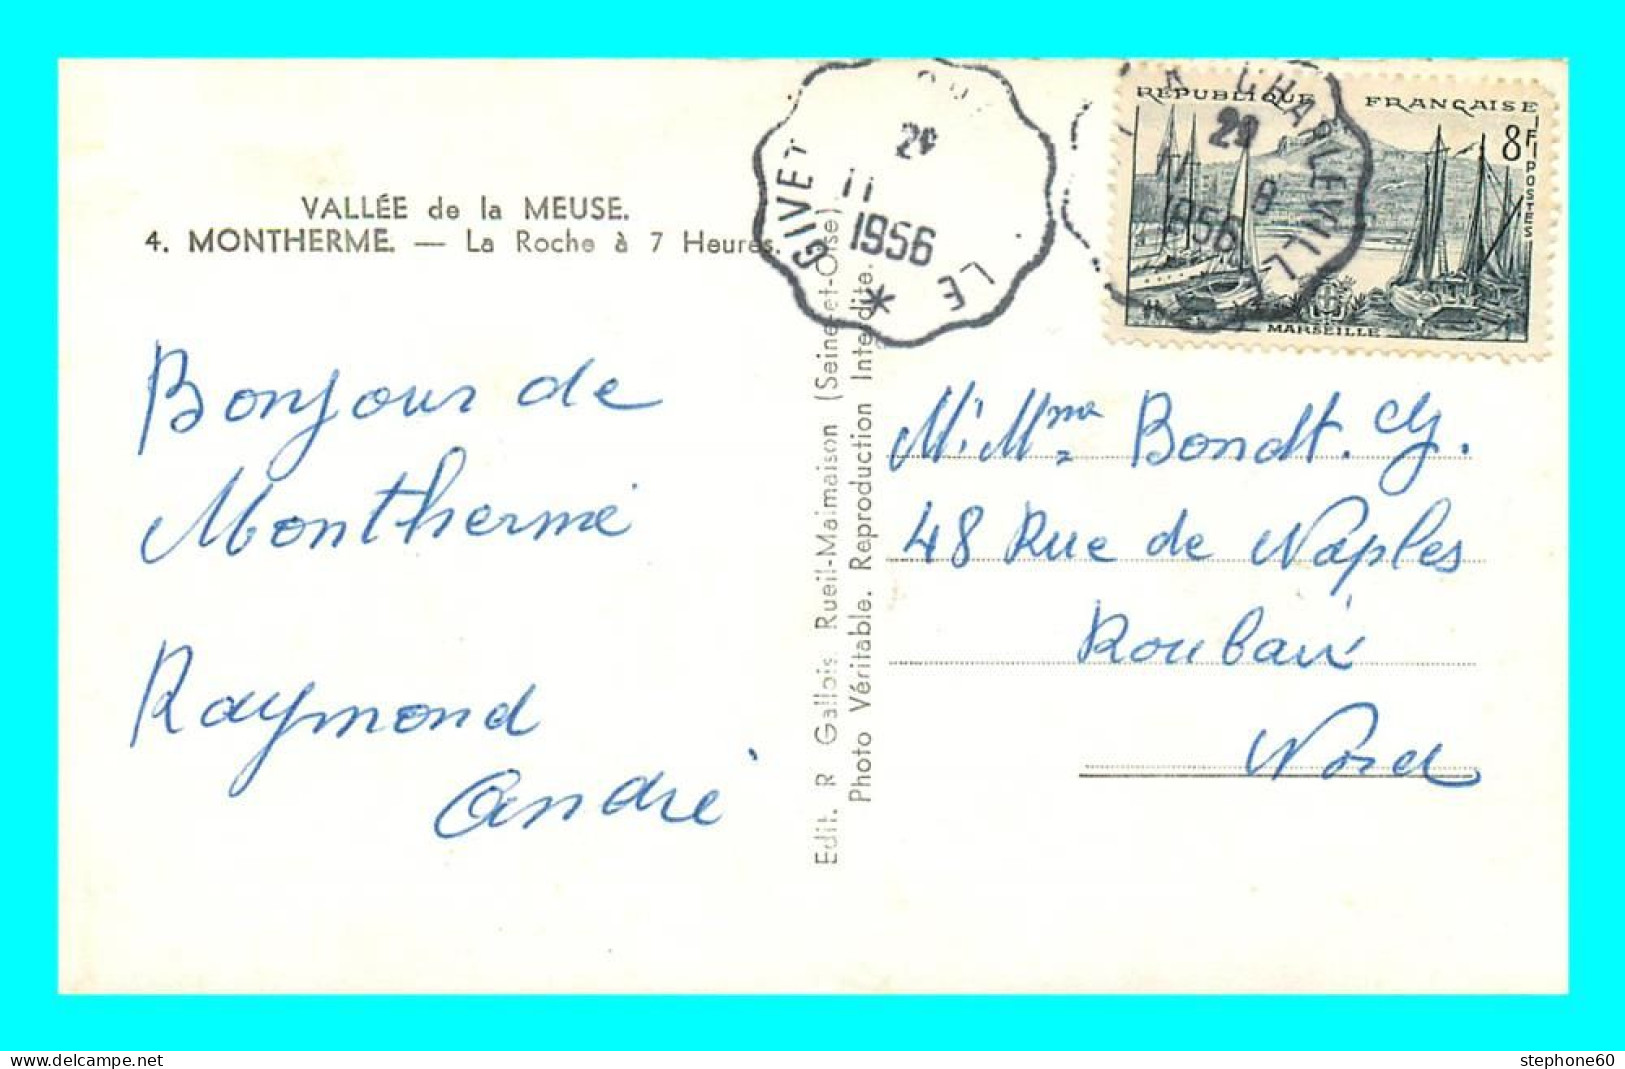 VALLÉE de la MEUSE.
4. MONTHERME. — La Roche à 7 Heures.
Bonjour de
Montherme
Raymond
André
Edit. R Gallois. Rueil-Malmaison (Seine-et-Oise)
Photo Véritable. Reproduction Interdite.
GIVET
LE
11
1956
*
CHARLEVILLE
11 8
1956
RÉPUBLIQUE FRANÇAISE
8F
POSTES
MARSEILLE
M. Mme Bondt.
48 Rue de Naples
Roubaix
Nord
delcampe.net
stephone60